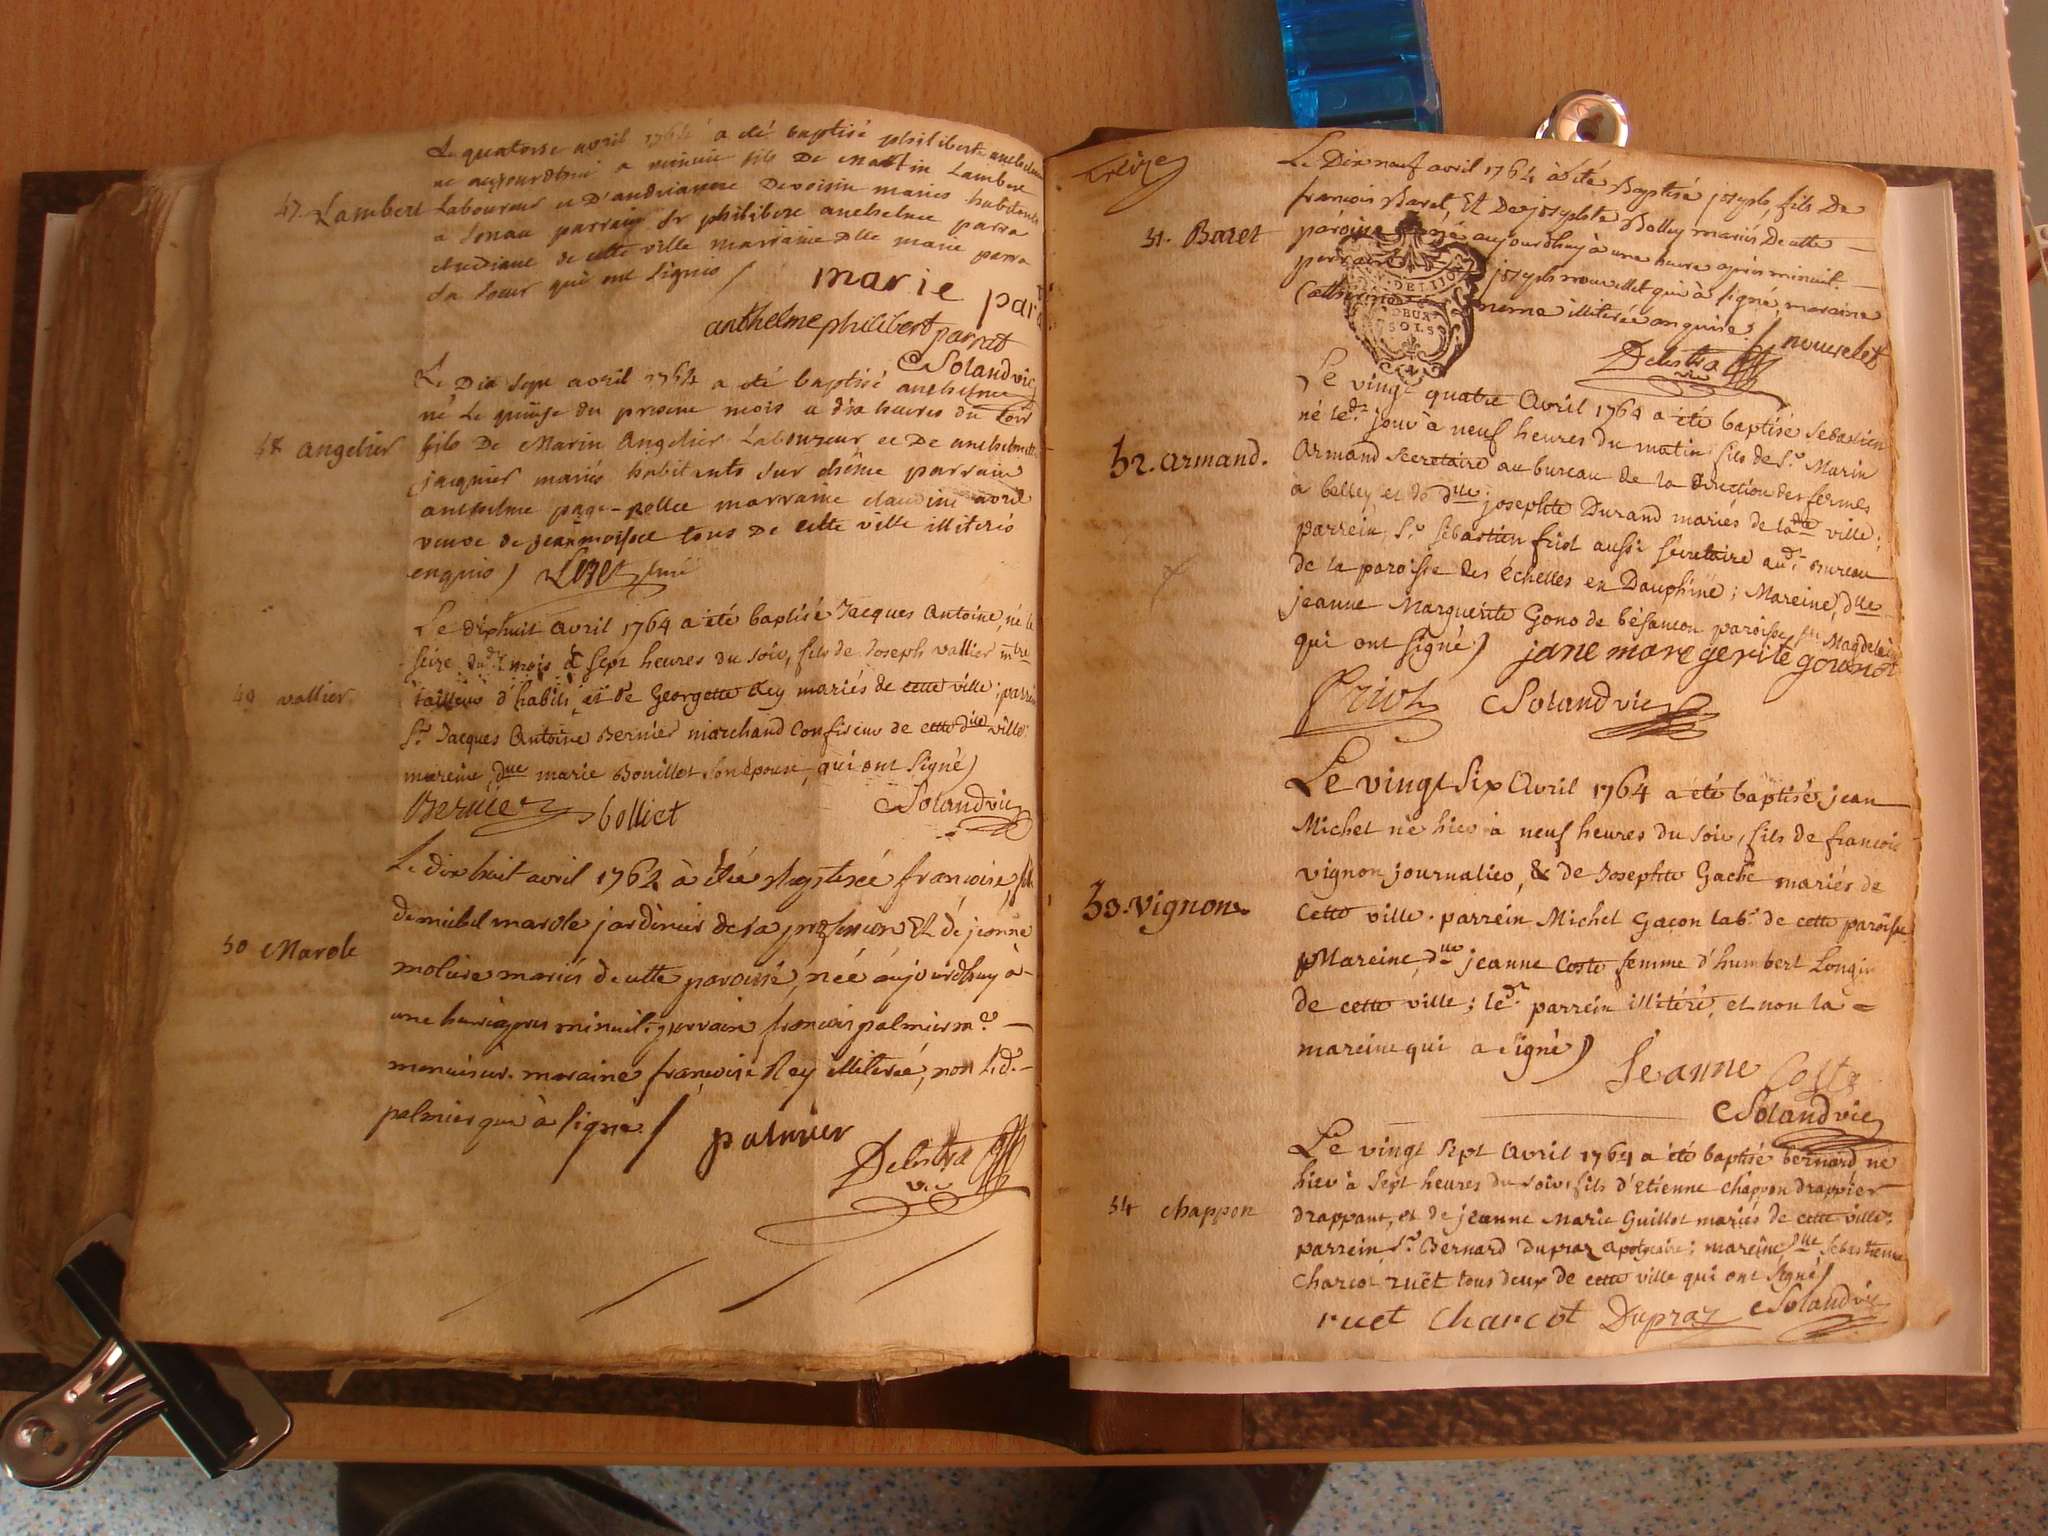 Le quatorse avril 1764 a été baptisé philibert anthelme
né aujourdhui a minuit fils De Martin Lambert
47. Lambert Laboureur et D'andrianne Devoisin mariés habitants
a Sonau parrain Sr philibert anthelme parra
etudiant de cette ville marraine Dlle marie parra
Sa Soeur qui ont Signés /
marie par
anthelme philibert parrat
Solandvic
Le Dix Sept avril 1764 a été baptisé anthelme
né Le quinze du present mois a dix heures du soir
48 angelier fils De Marin Angelier Laboureur et De anthelmette
jacquier mariés habitants Sur chême parrain
anthelme page-pellee marraine claudine avril
veuve de jean moisset tous De cette ville illiterés
enquis / curé
Le dixhuit Avril 1764 a été baptisé Jacques Antoine, né le
seize dudt. mois à sept heures du soir, fils de Joseph vallier mtre
49 vallier. tailleur d'habits, et de Georgette Rey mariés de cette ville; parrein
Sr. Jacques Antoine Bernier marchand Confiseur de cette dite ville;
mareine, dlle marie Bouillet Son épouse, qui ont signé)
Bernier bolliet Solandvic
Le dix huit avril 1764 à étée Baptisée francoise, fille
De michel marole jardinier de la profession Et de jeanne
50 Marole
moliere mariés de cette paroisse, née aujourdhuy à
une heure après minuit; parrain francois palmier me.
menuisier. maraine françoise Rey illiterée, non Led.
palmier qui à signé. / palmier
Delestra
vic
treize
Le Dix neuf avril 1764 à été Baptisé joseph, fils De
francois Baret, Et De josephte Bolley mariés De cette
51. Baret paroisse né aujourdhuy à une heure après minuit.
parrain joseph nouvellet qui à signé, maraine
Catherine illiterée enquise. / nouvelet
DEUX
SOLS
Delestra
vic
Le vingt quatre Avril 1764 a été baptisé Sebastien
né ledt. jour à neuf heures du matin fils de Sr. Marin
52. armand. Armand Secretaire au bureau de la Direction des fermes
à belley et de dlle. josephte Durand mariés de lade ville;
parrein, Sr. Sebastien friol aussi sécretaire audt. Bureau
de la paroisse des échelles en Dauphiné; Mareine, dlle
jeanne Marguerite Gono de bésancon paroisse Ste Magdelaine
qui ont signé) jane mare gerite gounot
Solandvic
Le vingt Six Avril 1764 a été baptisé jean
Michel né hier à neuf heures du soir, fils de francois
vignon journalier, & de Josephte Gache mariés de
53. vignon. Cette ville. parrein Michel Gacon labr. de cette paroisse
Mareine, dlle jeanne Coste femme d'humbert Longin
de cette ville; ledt. parrein illitéré, et non la
mareine qui a signé)
Jeanne Coste
Solandvic
Le vingt sept Avril 1764 a été baptisé bernard né
hier à sept heures du soir, fils d'Etienne Chappon drappier
54 chappon drappant, et de jeanne Marie Guillot mariés de cette ville;
parrein Sr. Bernard Dupraz apoticaire; mareine, dlle Sebastienne
Charcot ruët tous deux de cette ville qui ont signé /
ruet Charcot Dupraz Solandvic